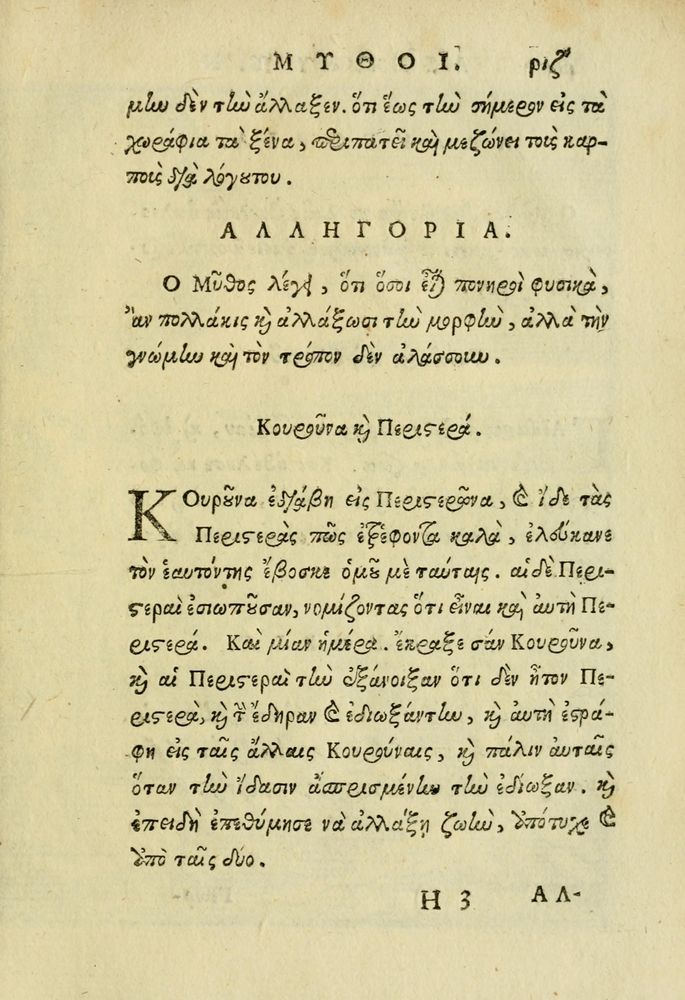 ΜΥΘΟΙ. ριζ
μὴν δὲν τὴν ἄλλαξεν. ὅτι ἕως τὴν σήμερον εἰς τὰ
χωράφια τὰ ξένα, περιπατεῖ καὶ μεζώνει τοὺς καρ-
ποὺς διὰ λόγουτου.
ΑΛΛΗΓΟΡΙΑ.
Ο Μῦθος λέγει, ὅτι ὅσοι εἶναι πονηροὶ φυσικὰ,
ἂν πολλάκις κὶ ἀλλάξωσι τὴν μορφὴν, ἀλλὰ τὴν
γνώμην καὶ τὸν τρόπον δὲν ἀλάσσουν.
Κουροῦνα κὶ Περιστερά.
ΚΟυροῦνα ἐδιάβη εἰς Περιστερῶνα, καὶ ἴδε τὰς
Περιστερὰς πῶς ἐτρέφοντα καλὰ, ἐλούκανε
τὸν ἑαυτόντης ἔβοσκε ὁμοῦ μὲ ταύταις. αἱ δὲ Περι-
στεραὶ ἐσιωποῦσαν, νομίζοντας ὅτι εἶναι καὶ ἀυτὴ Πε-
ριστερά. Καὶ μίαν ἡμέρα. ἔκραξε σάν Κουροῦνα,
κὶ αἱ Περιστεραὶ τὴν ὀξάνοιξαν ὅτι δὲν ἦτον Πε-
ριστερὰ, κὶ τὴν ἔδηραν καὶ ἐδιωξάντην, κὶ ἀυτὴ ἐστρά-
φη εἰς ταῖς ἄλλαις Κουρούναις, κὶ πάλιν ἀυταῖς
ὅταν τὴν ἴδασιν ἀσπρισμένην τὴν ἐδίωξαν. κὶ
ἐπειδὴ ἐπεθύμησε νὰ ἀλλάξῃ ζωὴν, ἀπότυχε καὶ
ἀπὸ ταῖς δύο.
Η 3 ΑΛ-